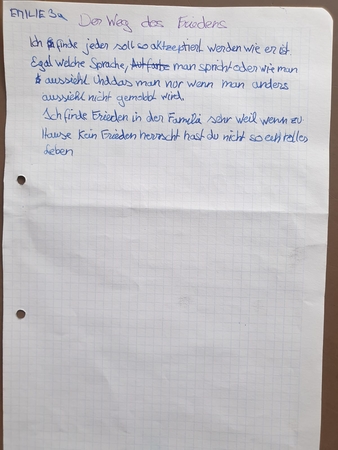 EMILIE 3a Der Weg des Friedens
Ich finde jeder soll so akzeptiert werden wie er ist.
Egal welche Sprache, man spricht oder wie man
aussieht. Und das man nor wenn man anders
aussieht nicht gemobbt wird.
Ich finde Frieden in der Familie sehr weil wenn zu
Hause kein Frieden herrscht hast du nicht so ein tolles
Leben